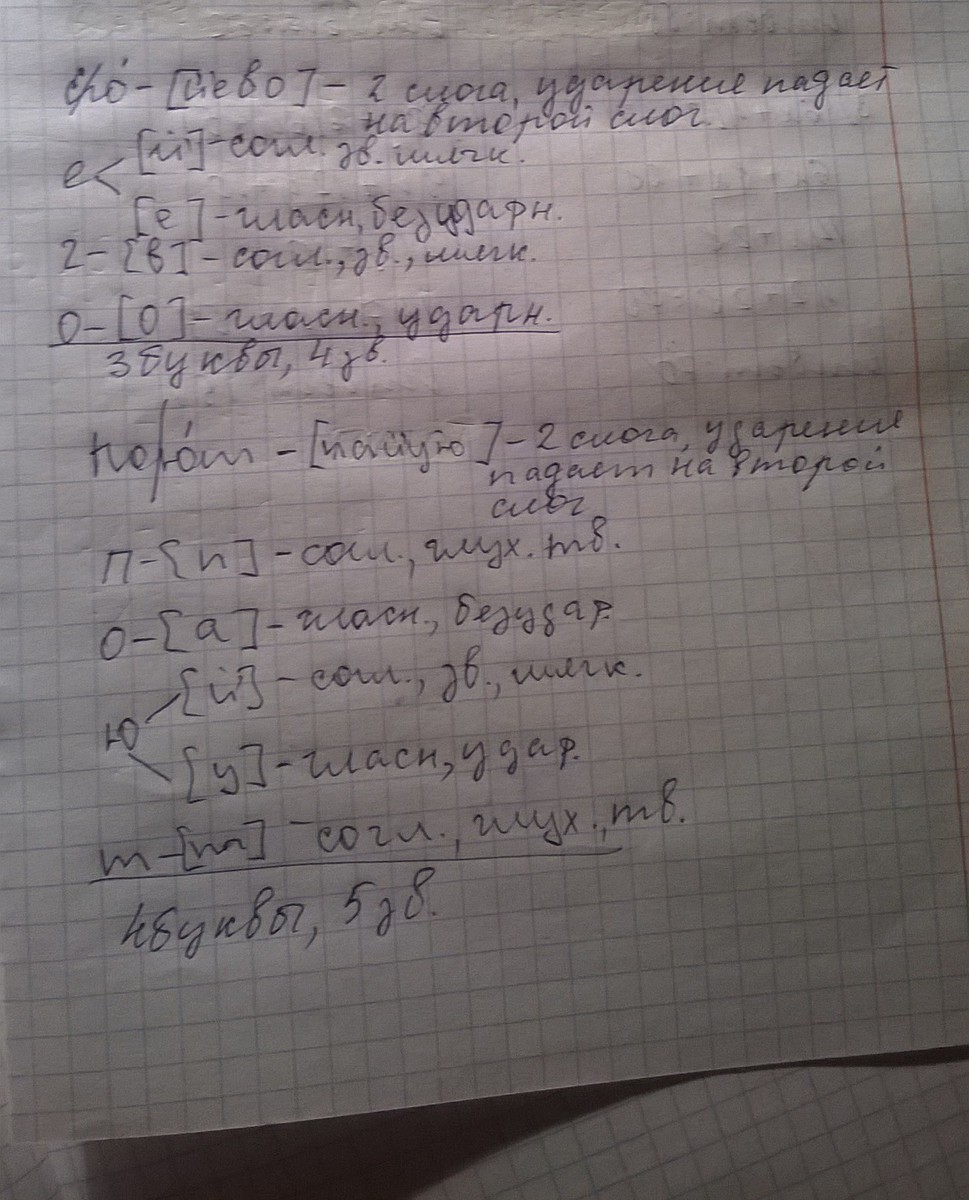 его́ - [йево] - 2 слога, ударение падает
на второй слог.
е < [й'] - согл. зв. мягк.
[е] - гласн, безударн.
г - [в] - согл., зв., мягк.
о - [о] - гласн., ударн.
3 буквы, 4 зв.
по|ю́т - 2 слога, ударение
падает на второй
слог
п - [п] - согл., глух. тв.
о - [а] - гласн., безудар.
[й'] - согл., зв., мягк.
ю <
[у] - гласн, удар.
т - [т] - согл., глух., тв.
4 буквы, 5 зв.